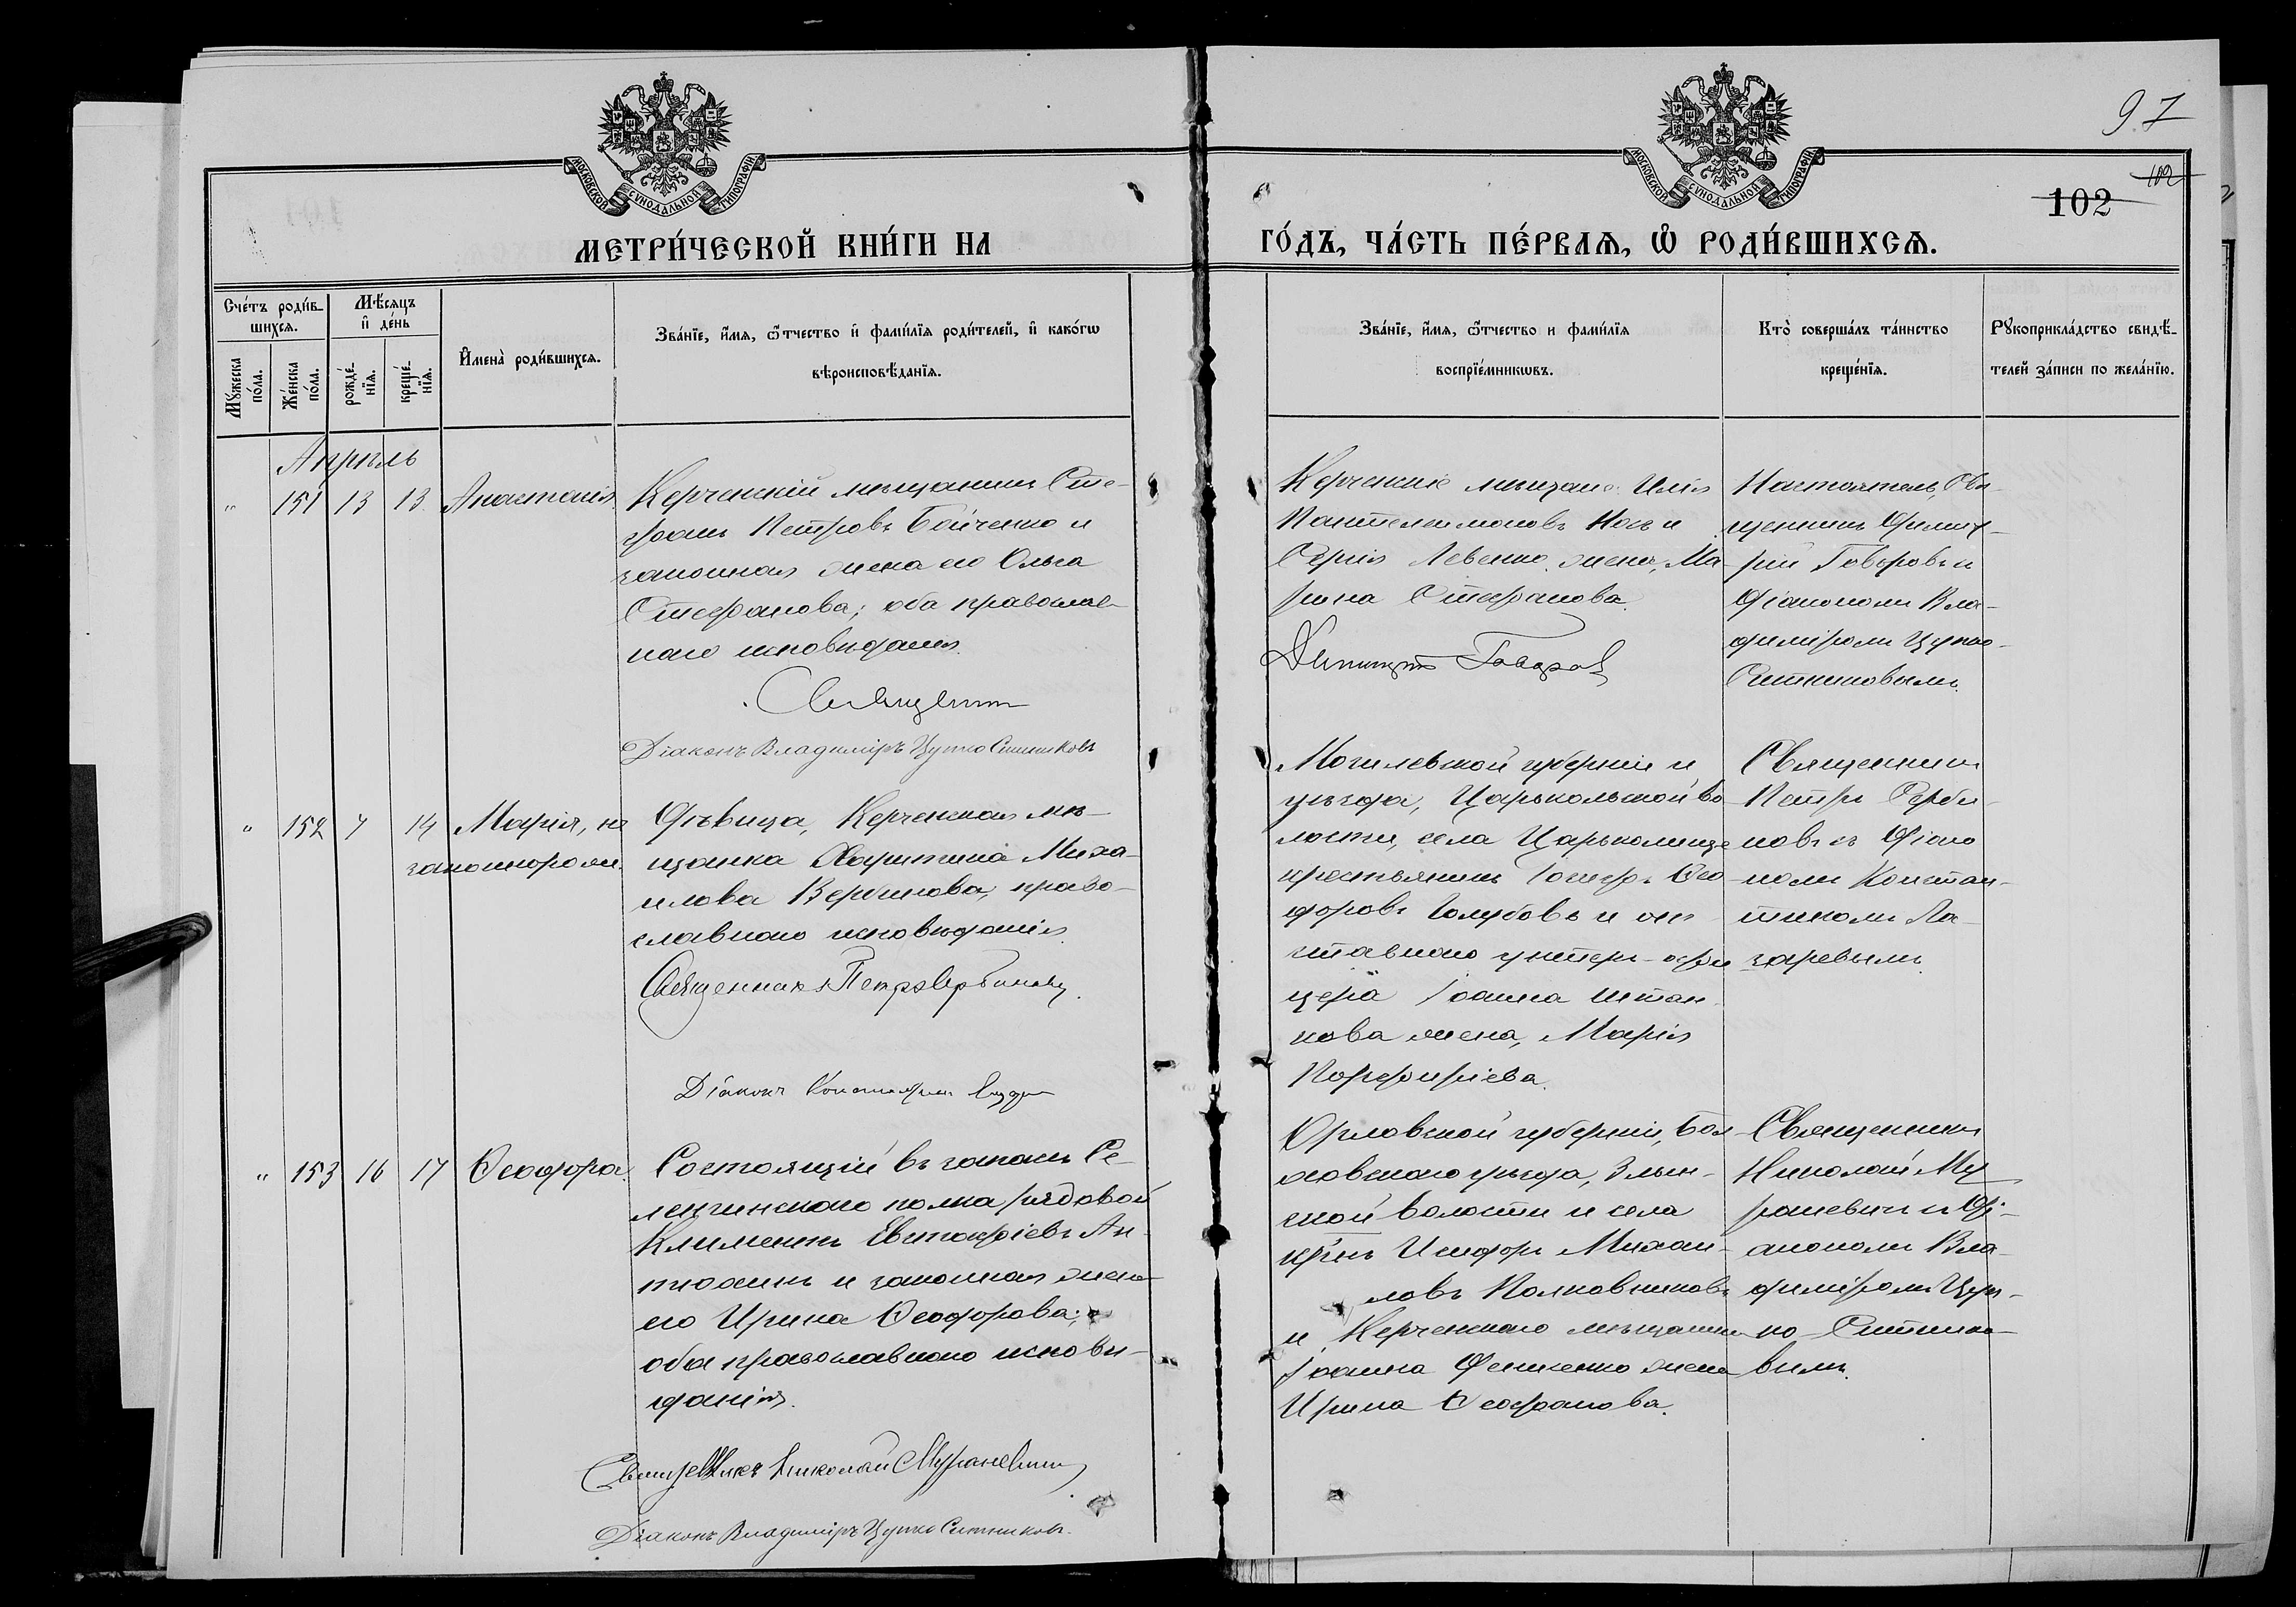 97
102
102
МОСКОВСКОЙ СѴНОДАЛЬНОЙ ТИПОГРАФІИ
МОСКОВСКОЙ СѴНОДАЛЬНОЙ ТИПОГРАФІИ
МЕТРИ́ЧЕСКОЙ КНИ́ГИ НА
ГО́ДЪ, ЧА́СТЬ ПЕ́РВАѦ, Ѡ҆ РОДИ́ВШИХСѦ.
Сче́тъ роди́в-
шихсѧ.
Мꙋ́жеска
по́ла.
Же́нска
по́ла.
Мѣ́сѧцъ
и҆ де́нь
рожде́-
нїѧ.
креще́-
нїѧ.
И҆мена̀ роди́вшихсѧ.
Зва́нїе, и҆́мѧ, ѻ҆́тчество и҆ фами́лїѧ роди́телей, и҆ како́гѡ
вѣроисповѣ́данїѧ.
Зва́нїе, и҆́мѧ, ѻ҆́тчество и фами́лїѧ
воспрїе́мникѡвъ.
Кто̀ соверша́лъ та́инство
креще́нїѧ.
Рꙋкоприкла́дство свидѣ́-
телей за́писи по жела́нїю.
Апрѣль
" 151 13 13 Анастасія
Керченскій мѣщанинъ Сте-
фанъ Петровъ Бойченко и
законная жена его Ольга
Стефанова; оба православ-
наго исповѣданія.
Священникъ
Діаконъ Владиміръ Цупко Ситниковъ
Керченскіе мѣщане: Илія
Пантелеимоновъ Носъ и
Сергія Левенко жена, Ма-
рина Стефанова.
Димитрій Говоровъ
Настоятель, Свя-
щенникъ Димит-
рій Говоровъ и
діакономъ Вла-
диміромъ Цупко-
Ситниковымъ.
" 152 7 14 Марія, не
законнорожд.
Дѣвица, Керченская мѣ-
щанка Харитина Миха-
илова Вербинова, право-
славнаго исповѣданія.
Священникъ Петръ Сербиновъ.
Діаконъ Константинъ Лазаревъ
Могилевской губерніи и
уѣзда, во-
лости, села
крестьянинъ Іосифъ Ѳео-
доровъ Голубовъ и от-
ставнаго унтеръ-офи-
цера Іоанна
кова жена, Марія
Порфиріева.
Священникъ
Петръ Серби-
новъ съ діако-
номъ Констан-
тиномъ Ла-
заревымъ.
" 153 16 17 Ѳеодора.
Состоящій въ запасѣ Се-
ленгинскаго полка рядовой
Климентъ Евстафіевъ Ан-
и законная жена
его Ирина Ѳеодорова;
оба православнаго исповѣ-
данія.
Священникъ Николай Мураневичъ
Діаконъ Владиміръ Цупко Ситниковъ.
Орловской губерніи, Бол-
ховскаго уѣзда, Злын-
ской волости и села
кр-нъ Исидоръ Михаи-
ловъ Полковниковъ
и Керченскаго мѣщанина
Іоанна Фенченко жена
Ирина Ѳеофанова.
Священникъ
Николай Му-
раневичъ и ді-
акономъ Вла-
диміромъ Цуп-
ко-Ситнико-
вымъ.